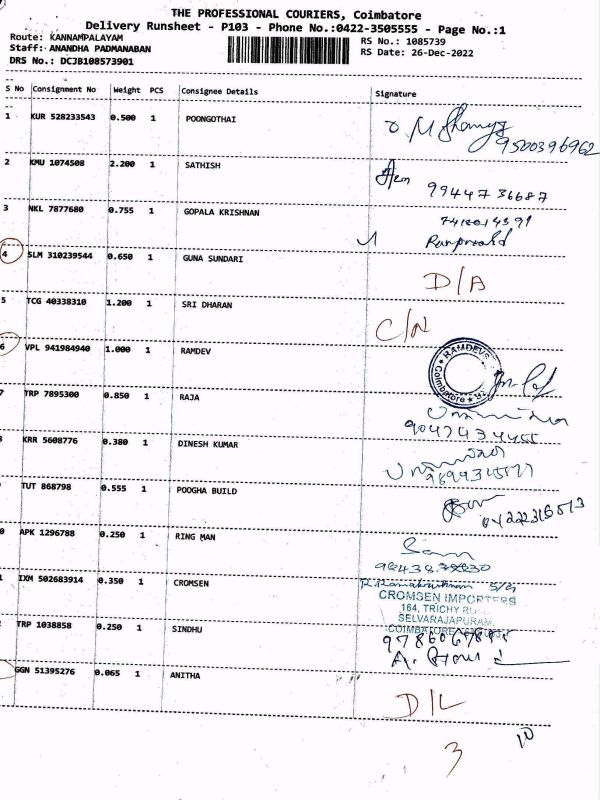 THE PROFESSIONAL COURIERS, Coimbatore
Delivery Runsheet - P103 - Phone No.:0422-3505555 - Page No.:1
Route: KANNAMPALAYAM
RS No.: 1085739
Staff: ANANDHA PADMANABAN
RS Date: 26-Dec-2022
DRS No.: DCJB108573901
S No Consignment No Weight PCS Consignee Details Signature
1 KUR 528233543 0.500 1 POONGOTHAI
9500396962
2 KMU 1074508 2.200 1 SATHISH
9944736687
3 NKL 7877680 0.755 1 GOPALA KRISHNAN
4 SLM 310239544 0.650 1 GUNA SUNDARI
D/A
5 TCG 40338310 1.200 1 SRI DHARAN
C/N
6 VPL 941984940 1.000 1 RAMDEV
RAMDEV
Coimbatore
7 TRP 7895300 0.850 1 RAJA
KRR 5608776 0.380 1 DINESH KUMAR
TUT 868798 0.555 1 POOGHA BUILD
0 APK 1296788 0.250 1 RING MAN
Sam
1 IXM 502683914 0.350 1 CROMSEN
CROMSEN IMPORTERS
164, TRICHY
SELVARAJAPURAM,
COIMBATORE
TRP 1038858 0.250 1 SINDHU
GGN 51395276 0.065 1 ANITHA
D/L
3
10